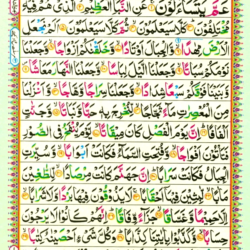 عَمَّ يَتَسَآءَلُوْنَ عَنِ النَّبَاِ الْعَظِيْمِ الَّذِيْ هُمْ فِيْهِ
مُخْتَلِفُوْنَ كَلَّا سَيَعْلَمُوْنَ ثُمَّ كَلَّا سَيَعْلَمُوْنَ اَلَمْ نَجْعَلِ
الْاَرْضَ مِهٰدًا وَّالْجِبَالَ اَوْتَادًا وَّخَلَقْنٰكُمْ اَزْوَاجًا وَّجَعَلْنَا
نَوْمَكُمْ سُبَاتًا وَّجَعَلْنَا الَّيْلَ لِبَاسًا وَّجَعَلْنَا النَّهَارَ مَعَاشًا
وَّبَنَيْنَا فَوْقَكُمْ سَبْعًا شِدَادًا وَّجَعَلْنَا سِرَاجًا وَّهَّاجًا وَّاَنْزَلْنَا
مِنَ الْمُعْصِرٰتِ مَآءً ثَجَّاجًا لِّنُخْرِجَ بِهٖ حَبًّا وَّنَبَاتًا وَّجَنّٰتٍ
اَلْفَافًا اِنَّ يَوْمَ الْفَصْلِ كَانَ مِيْقَاتًا يَّوْمَ يُنْفَخُ فِي الصُّوْرِ
فَتَاْتُوْنَ اَفْوَاجًا وَّفُتِحَتِ السَّمَآءُ فَكَانَتْ اَبْوَابًا وَّسُيِّرَتِ
الْجِبَالُ فَكَانَتْ سَرَابًا اِنَّ جَهَنَّمَ كَانَتْ مِرْصَادًا لِّلطَّاغِيْنَ
مَاٰبًا لّٰبِثِيْنَ فِيْهَآ اَحْقَابًا لَا يَذُوْقُوْنَ فِيْهَا بَرْدًا وَّلَا شَرَابًا
اِلَّا حَمِيْمًا وَّغَسَّاقًا جَزَآءً وِّفَاقًا اِنَّهُمْ كَانُوْا لَا يَرْجُوْنَ
حِسَابًا وَّكَذَّبُوْا بِاٰيٰتِنَا كِذَّابًا وَكُلَّ شَيْءٍ اَحْصَيْنٰهُ كِتٰبًا